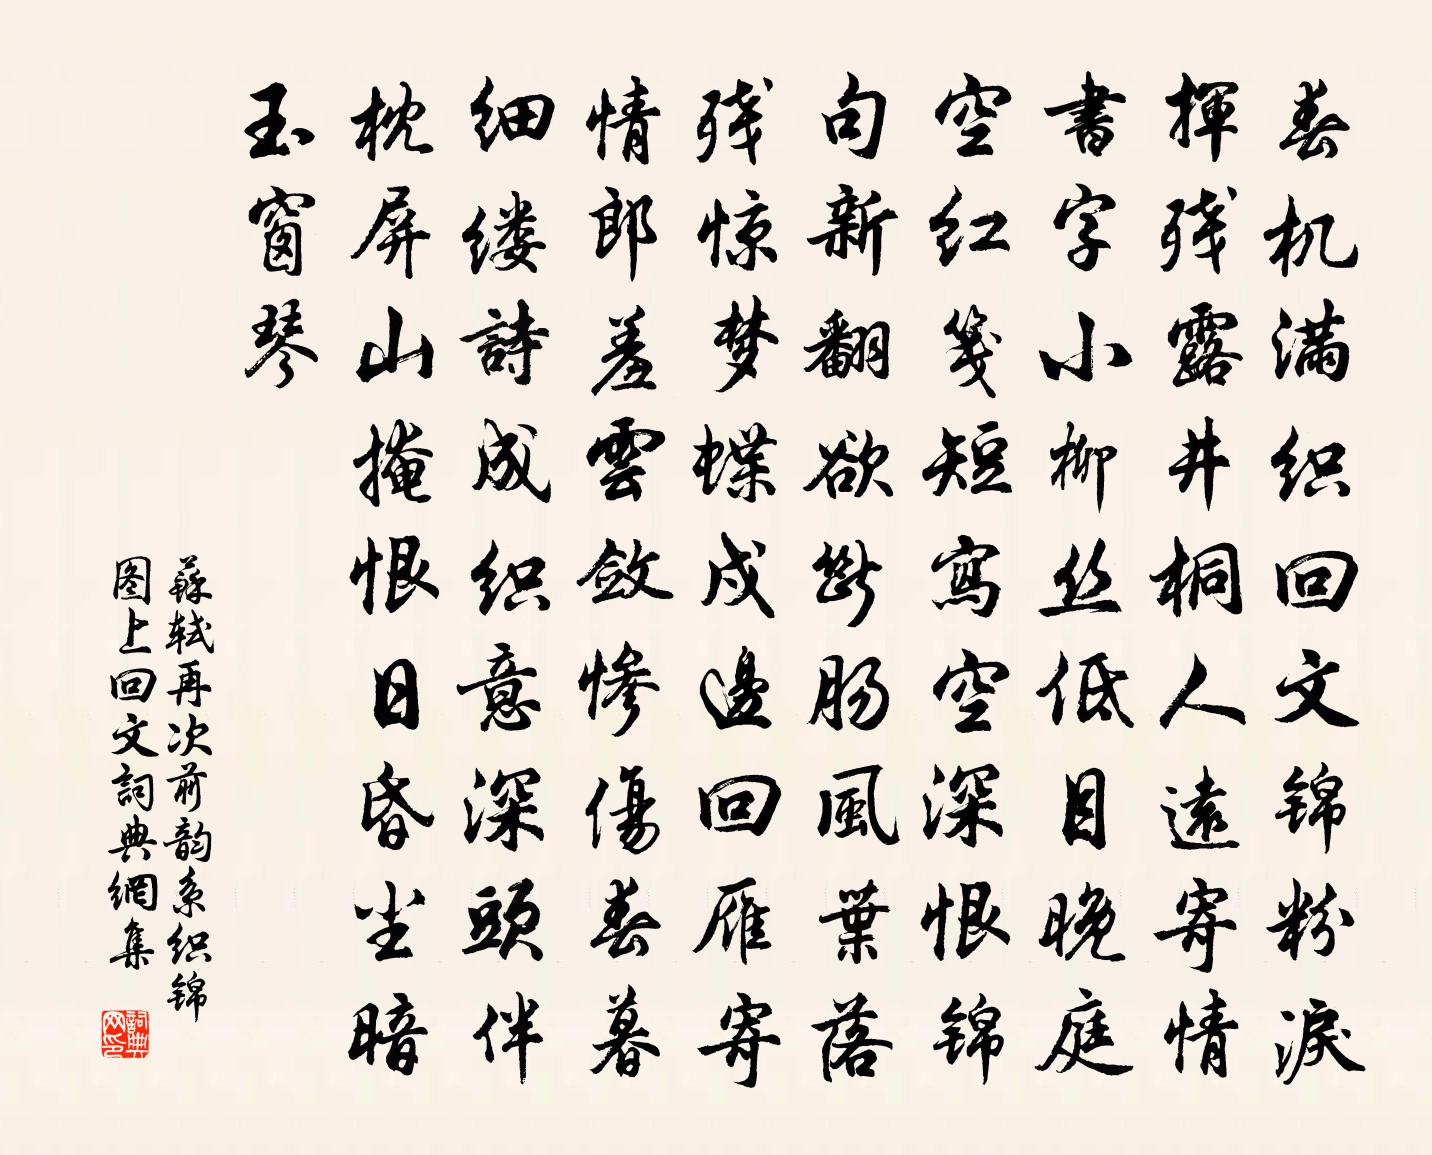 春机满织回文锦粉淚
揮残露井桐人遠寄情
書字小柳丝低目晚庭
空红笺短寫空深恨锦
句新翻欲断肠風葉落
残惊梦蝶戍邊回雁寄
情郎羞雲斂惨傷春暮
细缕詩成织意深頭伴
枕屏山掩恨日昏尘暗
玉窗琴
蘇轼再次前韵系织锦
图上回文詞典網集
詞典网